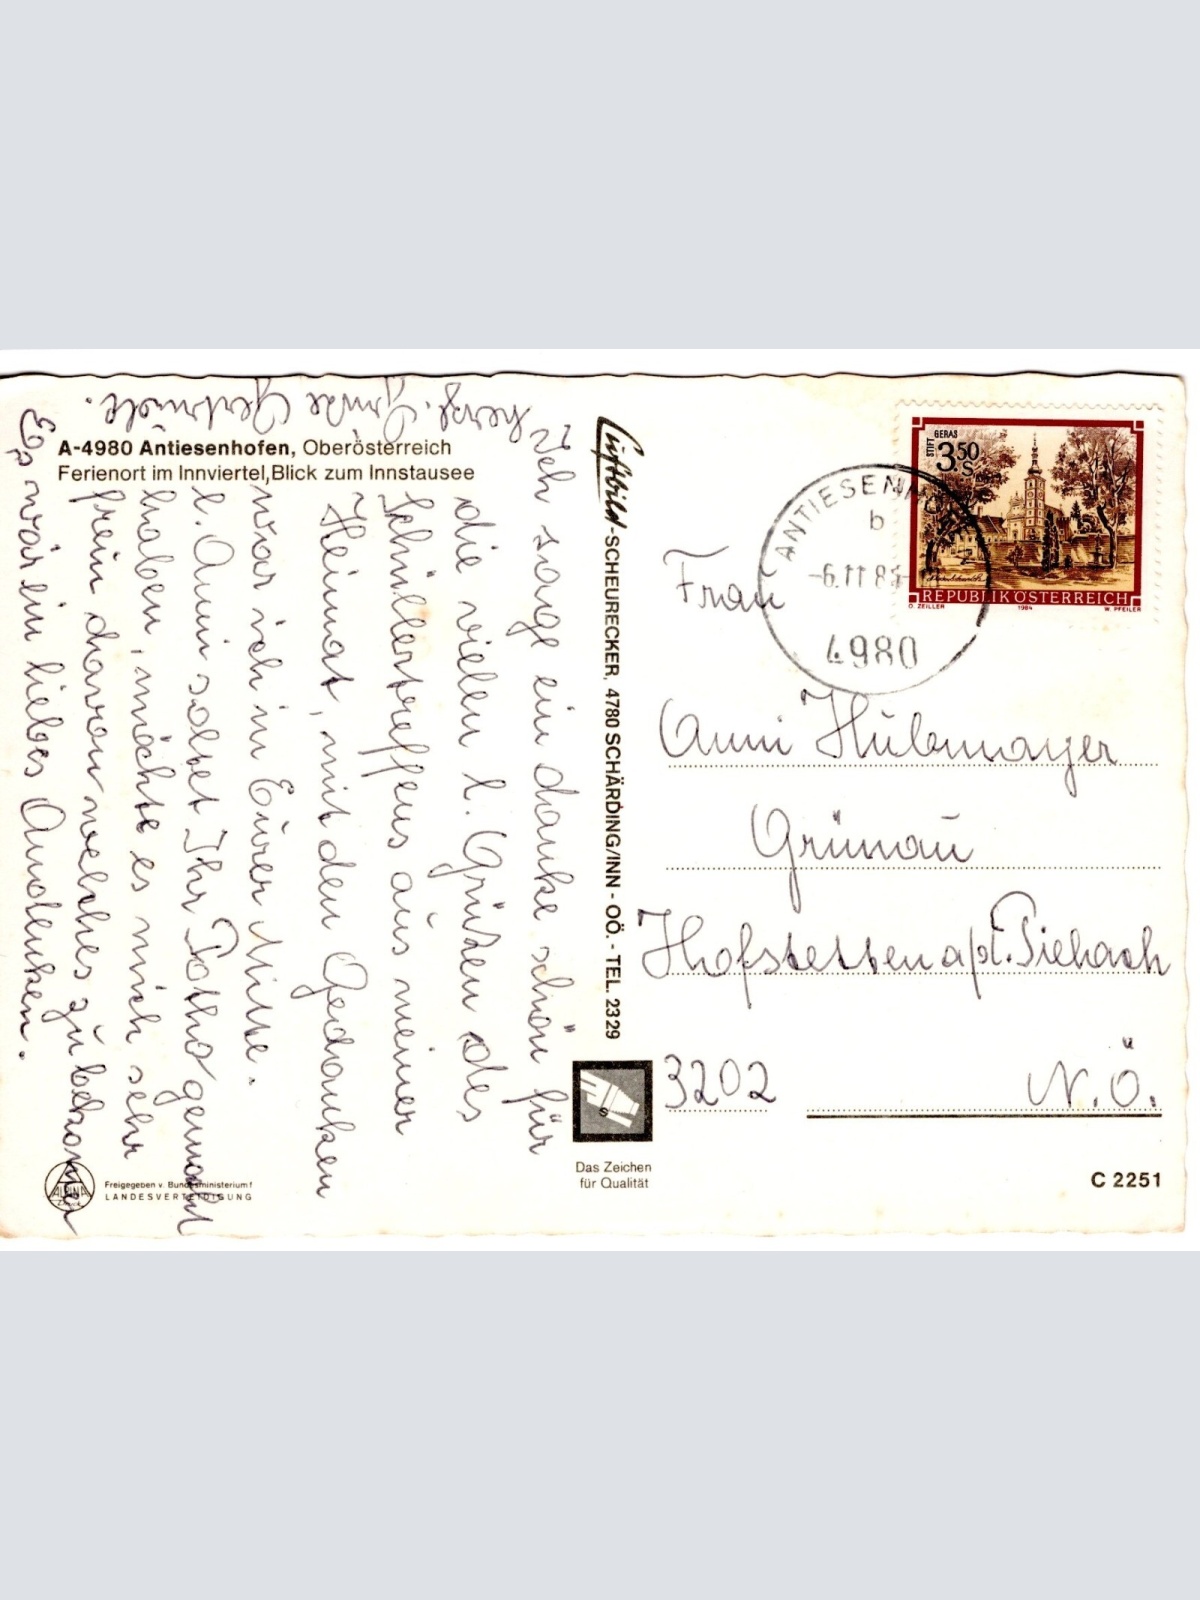 A-4980 Antiesenhofen, Oberösterreich
Ferienort im Innviertel, Blick zum Innstausee
Ich sage ein danke schön für
die vielen l. Grüßen des
Schülertreffens aus meiner
Heimat, mit den Gedanken
war ich in Eurer Mitte.
l. Anni soltet Ihr Fotho gemacht
haben, möchte es mich sehr
freün davon welches zu bekommen
Es wär ein liebes Andenken.
herzl. Grüße Gertrude.
Luftbild-SCHEURECKER, 4780 SCHÄRDING/INN - OÖ. - TEL. 2329
Das Zeichen
für Qualität
ALPINA
Freigegeben v. Bundesministerium f
LANDESVERTEIDIGUNG
STIFT GERAS
3.50
S
REPUBLIK ÖSTERREICH
O. ZEILLER 1984 W. PFEILER
b
-6.11 8
4980
Frau
Anni Hübmayer
Grünau
Hofstetten a/d. Pielach
3202 N.Ö.
C 2251